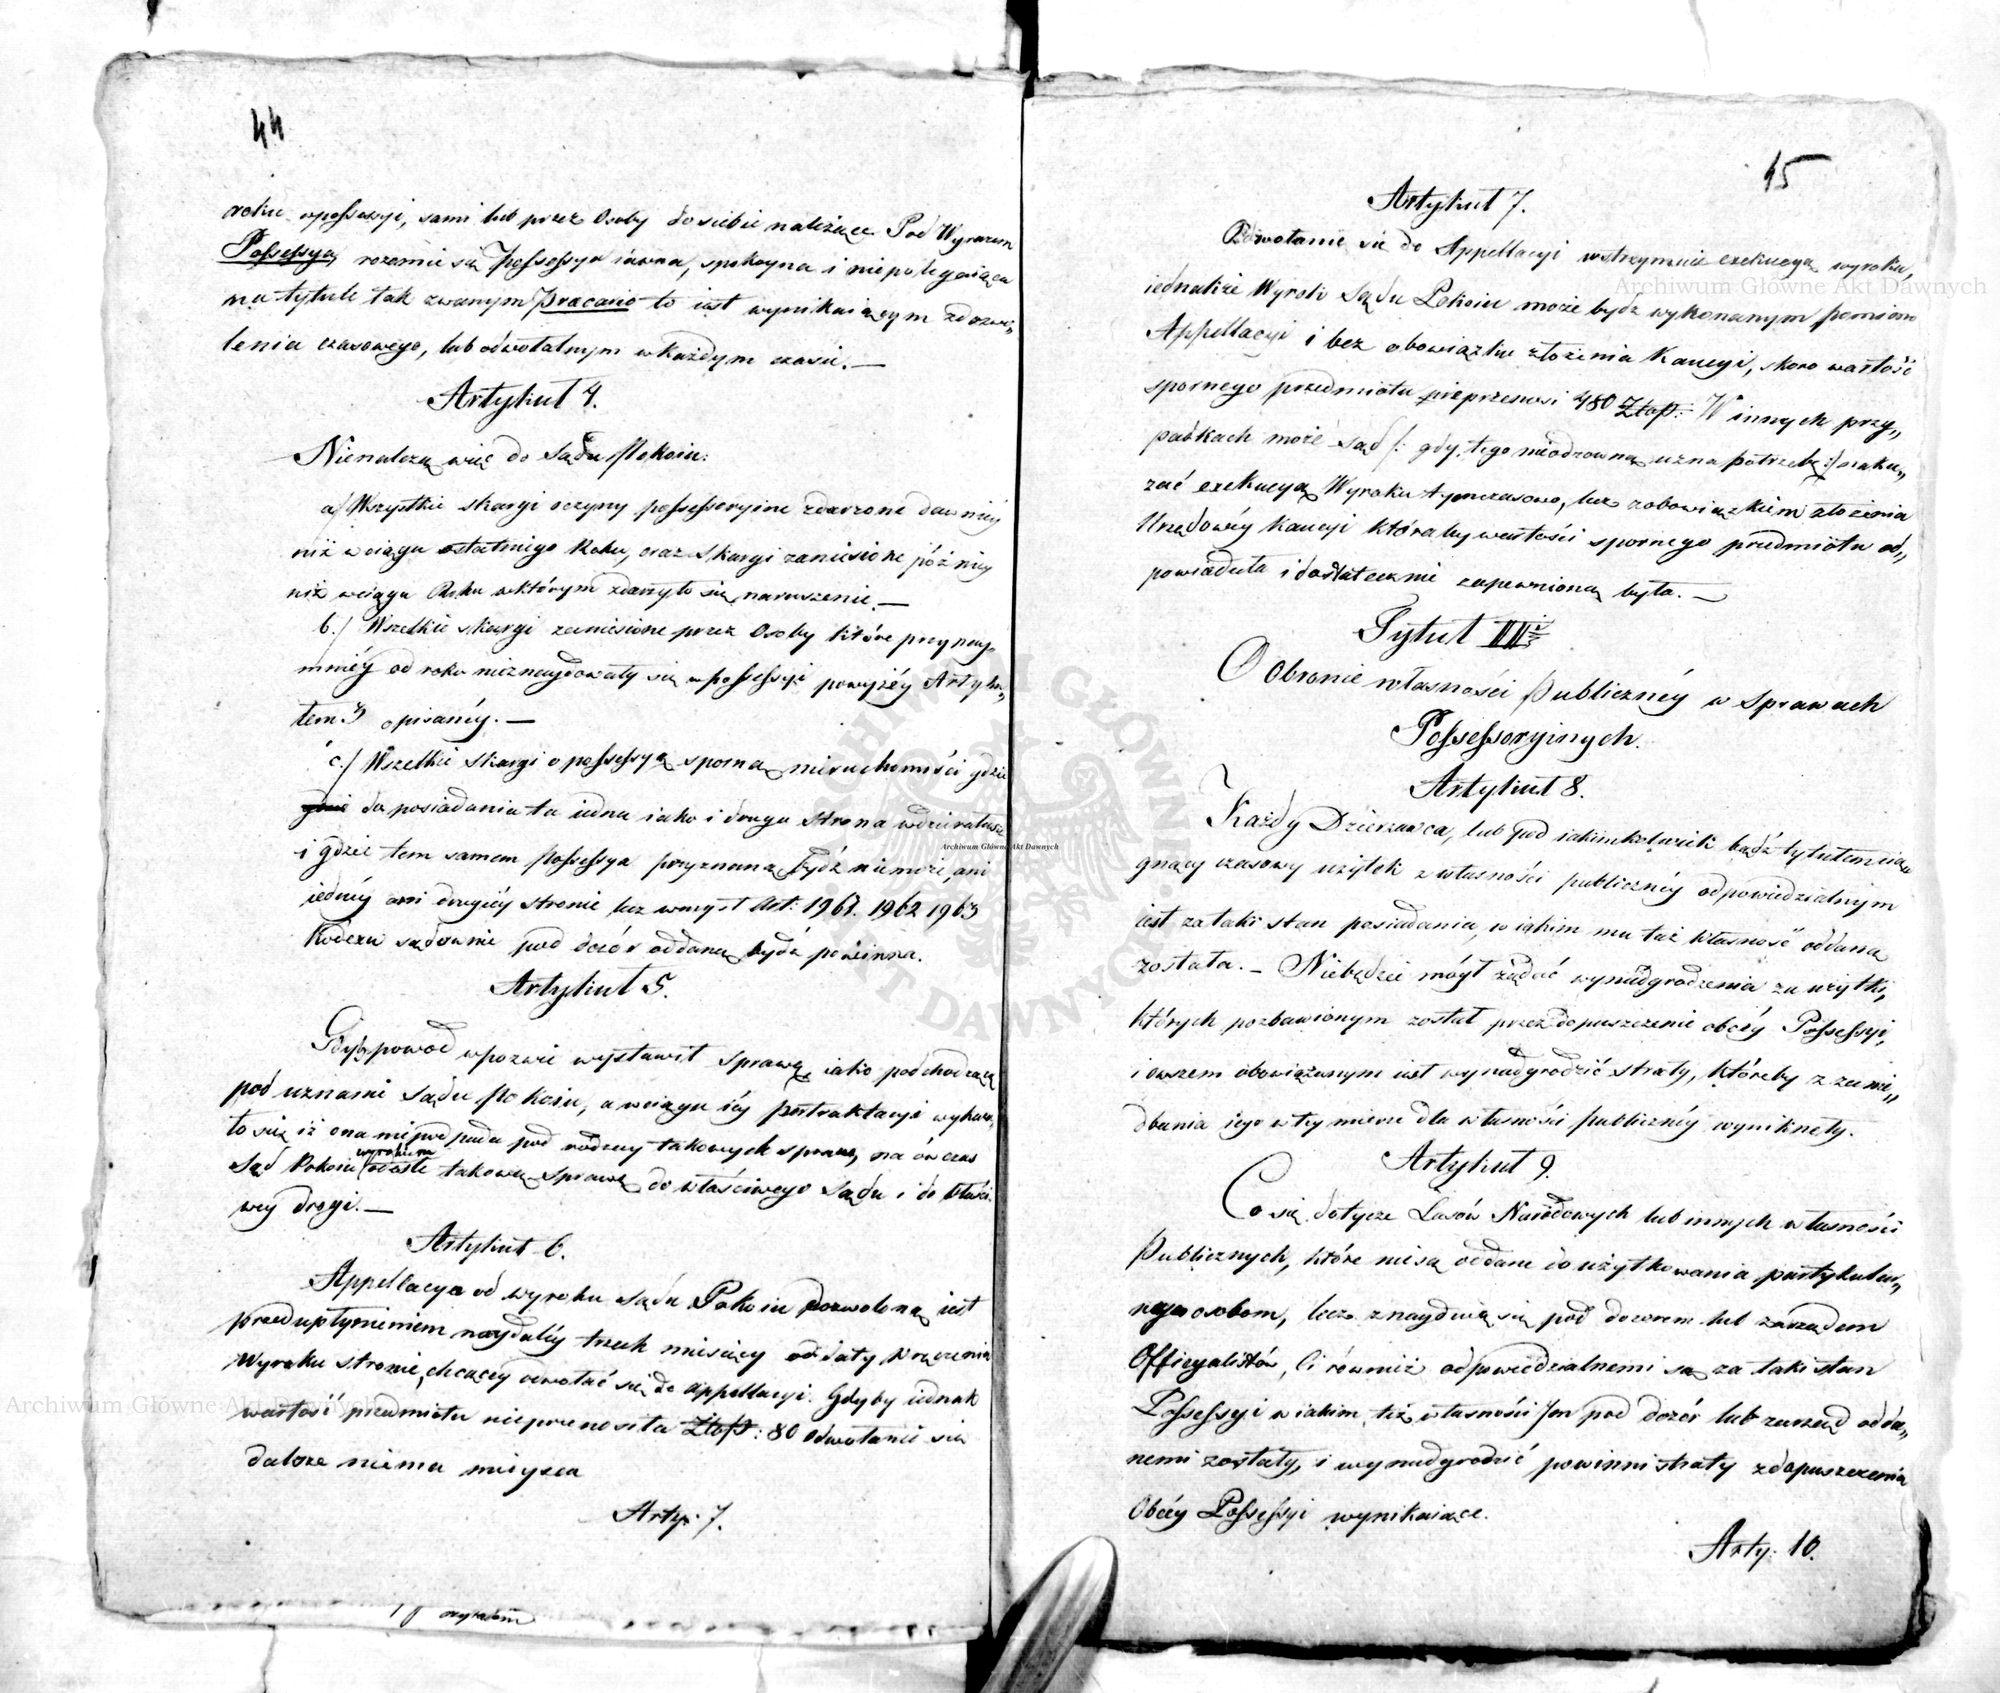 44
roku wpossessyi, sami lub przez Osoby dosiebie należące. Pod Wyrazem
Possessya, rozumie się Possessya iawna, spokoyna i niepolegaiąca
na tytule tak zwanym Precario to iest wynikaiącym zdozwo„
lenia czasowego, lub odwołalnym wkażdym czasie. —
Artykuł 4.
Nienależą więc do Sądu Pokoiu:
a/ Wszystkie skargi oczyny possessoryine zdarzone dawniéy
niż wciągu ostatniego Roku, oraz skargi zaniesione późniéy
niż wciągu Roku wktórym zdarzyło się naruszenie. —
b./ Wszelkie skargi zaniesione przez Osoby które przynay„
mniéy od roku nieznaydowały się wpossessyi powyżéy Artyku„
łem 3 opisanéy. —
c./ Wszelkie skargi o possessyą sporną nieruchomości gdzie
do posiadania ta iedna iako i druga Strona wdzierała się
i gdzie tem samem Possessya przyznaną bydź niemoże, ani
iednéy ani drugiéy stronie lecz wmyśl Art: 1961. 1962 1963
Kodexu sądownie pod dozór oddaną bydź powinna.
Artykuł 5.
Gdyby powod wpozwie wystawił sprawę, iako podchodzącą
pod uznanie Sądu Pokoiu, a wciągu iéy pertraktacyi wykaza„
ło się iż ona nie podpada pod rodzay takowych spraw, na ów czas
wyrokiem
Sąd Pokoiu odeśle takową sprawę do właściwego Sądu i do właści„
wey drogi. —
Artykuł 6.
Appellacya od wyroku sądu Pokoiu dozwoloną iest
przed upłynieniem naydaléy trzech miesięcy od daty wręczenia
Wyroku stronie, chcącéy odwołać się do appellacyi. Gdyby iednak
wartość przedmiotu nieprzenosiła Złotp: 80 odwołanie się
dalsze niema mieysca
Arty. 7.
wyrokiem
45
Artykuł 7.
Odwołanie się do Appellacyi wstrzymuie exekucyą wyroku,
iednakże Wyrok Sądu Pokoiu może bydź wykonanym pomimo
Appellacyi i bez obowiązku złożenia Kaucyi, skoro wartość
spornego przedmiotu nieprzenosi 480 Złotp: W innych przy„
padkach może Sąd /: gdy tego nieodzowną uzna potrzebę :/ naka„
zać exekucyą Wyroku tymczasowo, lecz zobowiązkiem złożenia
Urzędowéy Kaucyi któraby wartości spornego przedmiotu od„
powiadała i dostatecznie zapewnioną była. —
Tytuł III
O Obronie własności Publicznéy w Sprawach
Possessoryinych.
Artykuł 8.
Każdy Dzierzawca, lub pod iakimkolwiek bądź tytułem cią„
gnący czasowy użytek z własności publicznéy odpowiedzialnym
iest za taki stan posiadania, w iakim mu taż własność oddaną
została. — Niebędzie mógł żądać wynadgrodzenia za użytki,
których pozbawionym został przez dopuszczenie obcéy Possessyi,
i owszem obowiązanym iest wynadgrodzić straty, któreby z zanie„
dbania iego w téy mierze dla własności publicznéy wyniknęły.
Artykuł 9.
Co się dotycze Lasów Narodowych lub innych własności
Publicznych, które nie są oddane do użytkowania partykular„
nym osobom, lecz znayduią się pod dozorem lub zarządem
Officyalistów, Ci równiéż odpowiedzialnemi są za taki stan
Possessyi w iakim też własności im pod dozór lub zarząd odda„
nemi zostały, i wynadgrodzić powinni straty zdopuszczenia
Obcéy Possessyi wynikaiące.
Arty: 10.
Archiwum Główne Akt Dawnych
Archiwum Główne Akt Dawnych
Archiwum Główne Akt Dawnych
ARCHIWUM GŁÓWNE AKT DAWNYCH